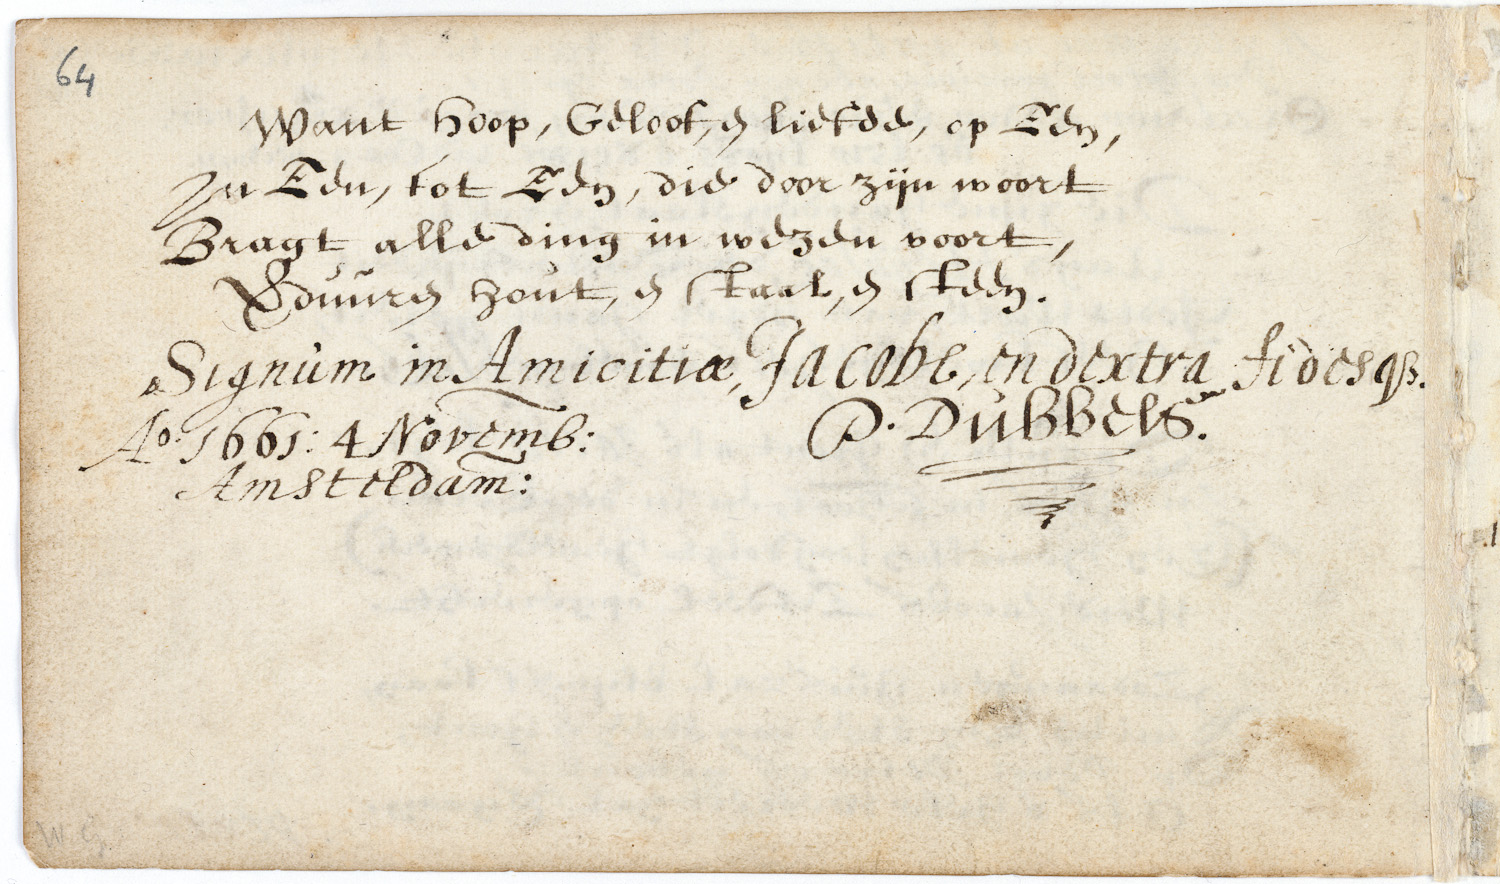 64
Want hoop, Geloof, en liefde, op Een,
In Een, tot Een, die door zijn woort
Bragt alle ding in wezen voort,
Eduuren hout, en staal, en steen.
Signum in Amicitiæ, Jacobe, en dextra fidesqz.
Ao. 1661: 4 Novemb: D. Dubbels.
Amsteldam:
W.G.